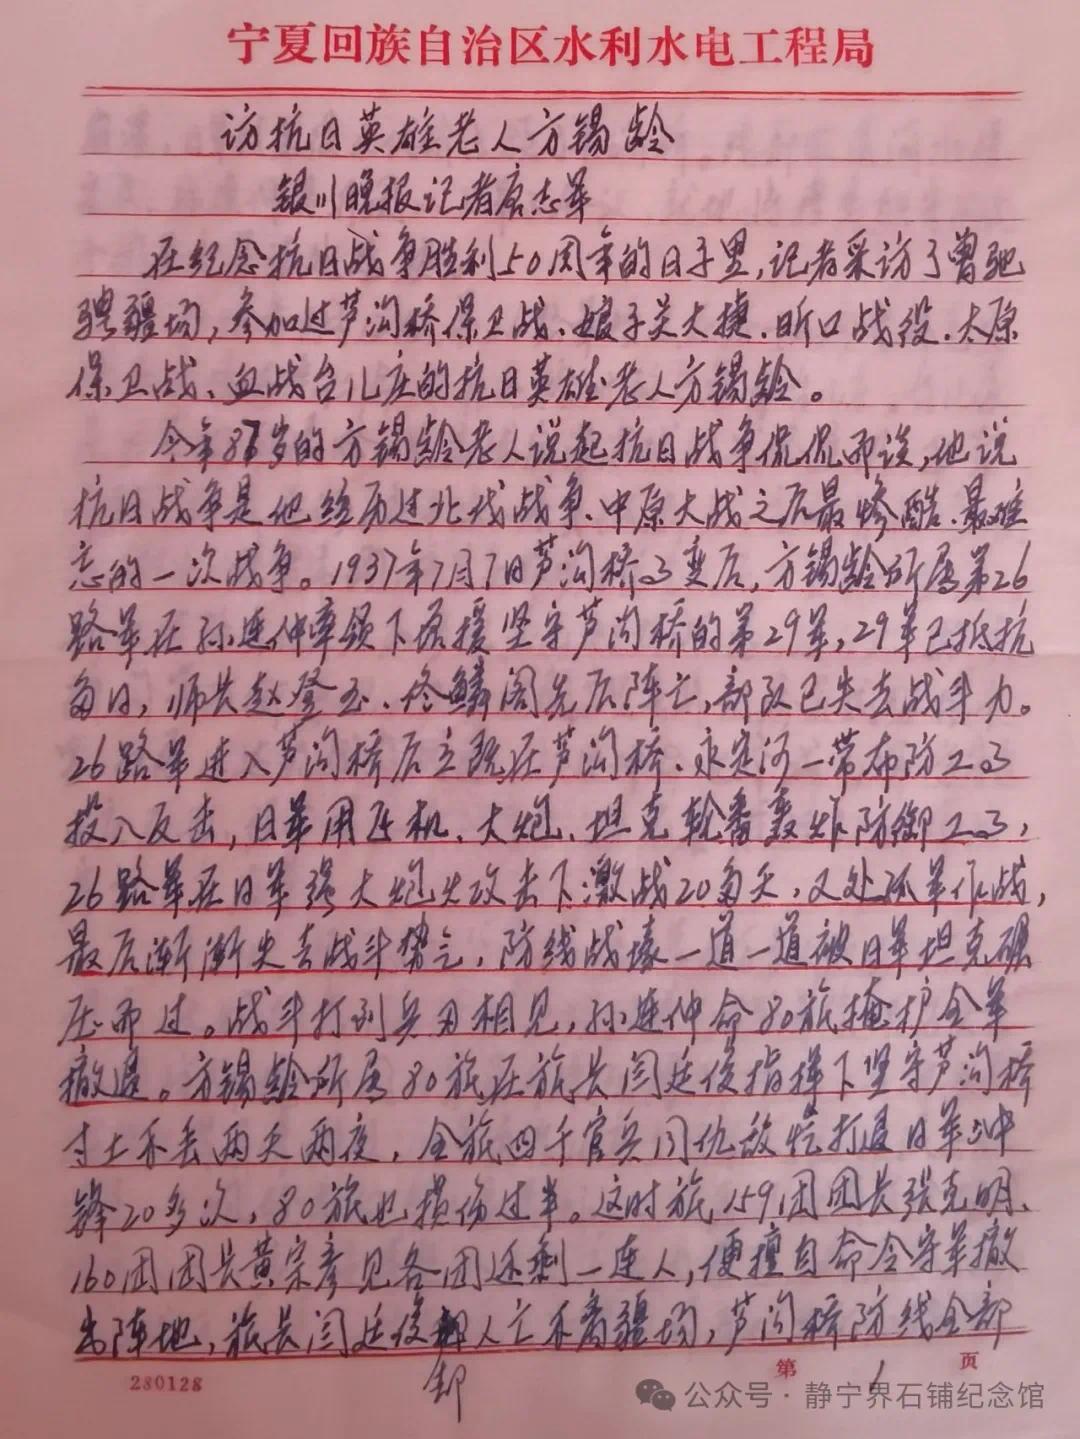 宁夏回族自治区水利水电工程局
访抗日英雄老人方锡龄
银川晚报记者唐志军
在纪念抗日战争胜利50周年的日子里,记者采访了曾驰
骋疆场,参加过芦沟桥保卫战、娘子关大捷、忻口战役、太原
保卫战、血战台儿庄的抗日英雄老人方锡龄。
今年87岁的方锡龄老人说起抗日战争侃侃而谈,他说
抗日战争是他经历过北伐战争、中原大战之后最惨酷、最难
忘的一次战争。1937年7月7日芦沟桥事变后,方锡龄所属第26
路军在孙连仲率领下增援坚守芦沟桥的第29军,29军已抵抗
多日,师长赵登玉、佟鳞阁先后阵亡,部队已失去战斗力。
26路军进入芦沟桥后立既在芦沟桥、永定河一带布防工事
投入反击,日军用飞机、大炮、坦克轮番轰炸防御工事,
26路军在日军强大炮火攻击下激战20多天,又处孤军作战,
最后渐渐失去战斗势气,防线战壕一道一道被日军坦克碾
压而过。战斗打到兵刃相见,孙连仲命80旅掩护全军
撤退。方锡龄所属80旅在旅长闫廷俊指挥下坚守芦沟桥
寸土不丢两天两夜,全旅四千官兵同仇敌忾打退日军冲
锋20多次,80旅也损伤过半。这时旅159团团长张克明、
160团团长黄宗彦见各团还剩一连人,便擅自命令守军撤
出阵地,旅长闫廷俊却人亡不离疆场,芦沟桥防线全部
却
280128
第 1 页
公众号·静宁界石铺纪念馆